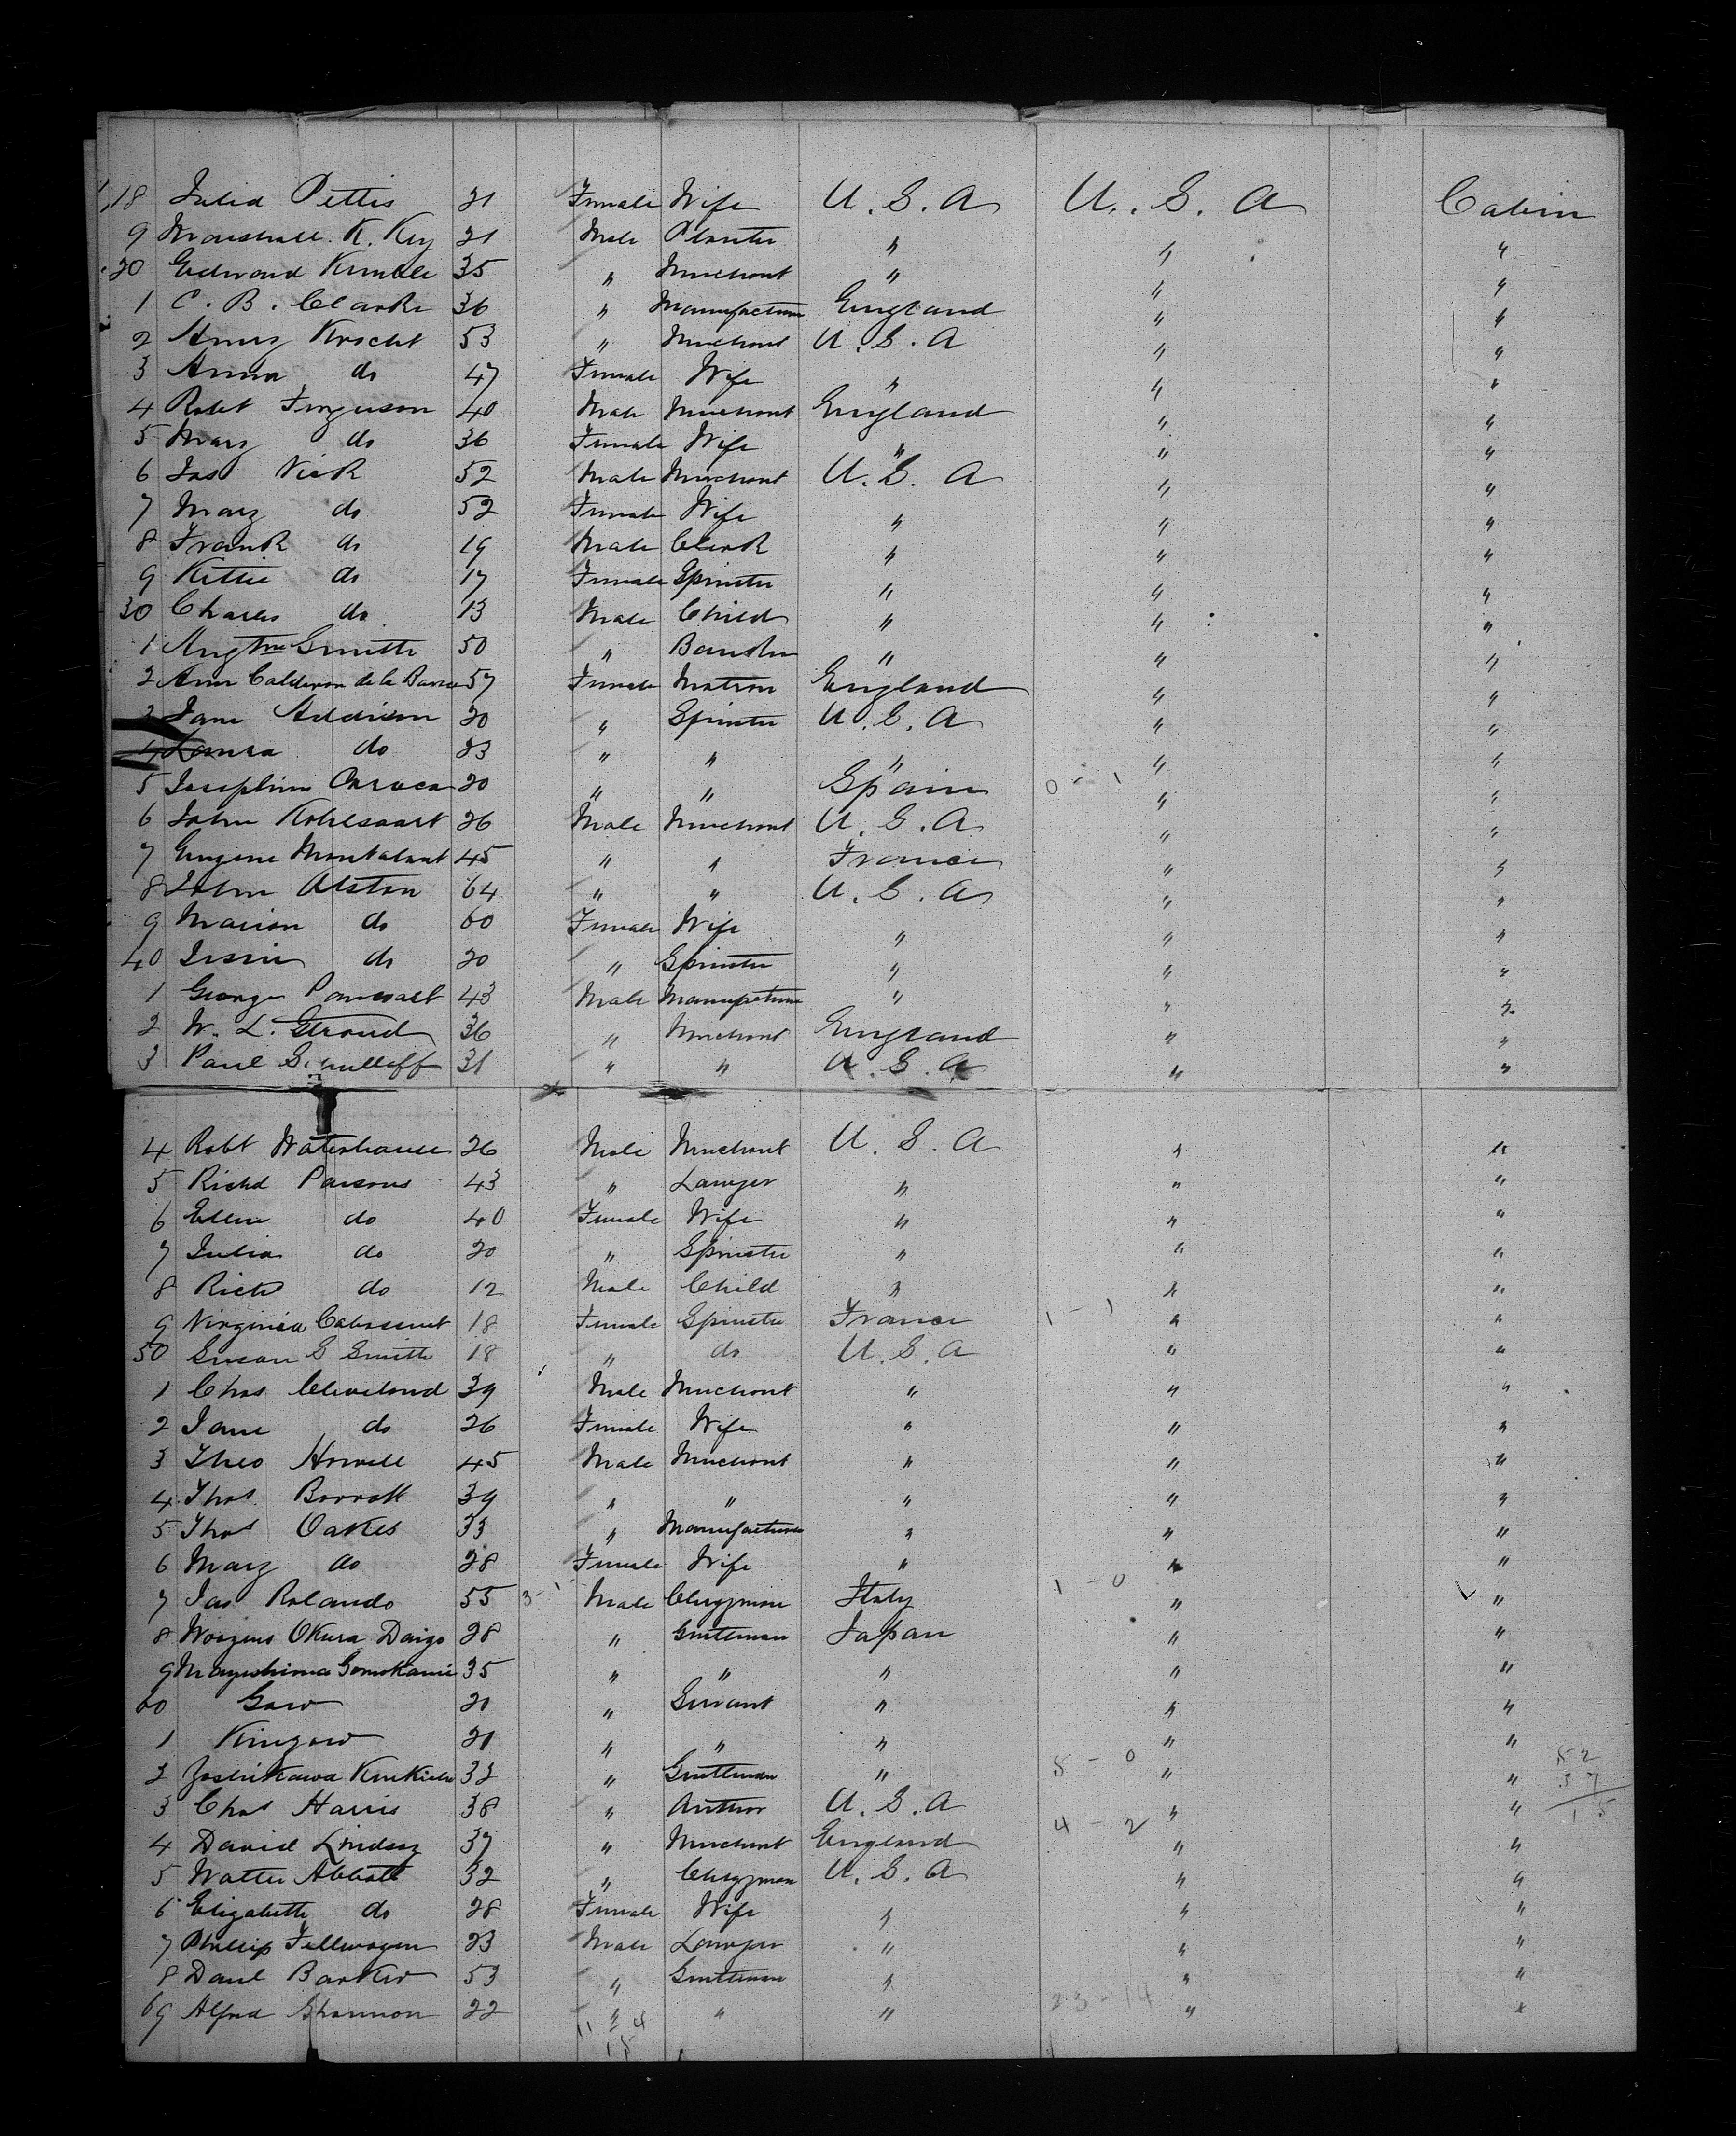 18 Julia Pettis 21 Female Wife U.S.A U.S.A Cabin
9 Marshall K. Key 21 Male Planter " " "
20 Edward Kimble 35 " Merchant " " "
1 C. B. Clarke 36 " Manufacturer England " "
2 Knecht 53 " Merchant U.S.A " "
3 Anna do 47 Female Wife " " "
4 Robt Ferguson 40 Male Merchant England " "
5 Mary do 36 Female Wife " " "
6 Jas Vick 52 Male Merchant U.S.A " "
7 Mary do 52 Female Wife " " "
8 Frank do 19 Male Clerk " " "
9 Kittie do 17 Female Spinster " " "
30 Charles do 13 Male Child " " "
1 Smith 50 " " " "
2 Ann Calderon de la Barca 57 Female Matron England " "
3 Jane Addison 20 " Spinster U.S.A " "
4 Laura do 23 " " " " "
5 Josephine 20 " " Spain 0 - 1 " "
6 John Kohlsaart 26 Male Merchant U.S.A " "
7 Eugene Montalant 45 " " France " "
8 John Alston 64 " " U.S.A " "
9 Marion do 60 Female Wife " " "
40 Jessie do 20 " Spinster " " "
1 George 43 Male Manufacturer " " "
2 W. L. Stroud 36 " Merchant England " "
3 Paul 31 " " U.S.A " "
4 Robt Waterhouse 26 Male Merchant U.S.A " "
5 Richd Parsons 43 " Lawyer " " "
6 Ellen do 40 Female Wife " " "
7 Julia do 20 " Spinster " " "
8 Richd do 12 Male Child " " "
9 Virginia 18 Female Spinster France 1 - 1 " "
50 Susan G Smith 18 " do U.S.A " "
1 Chas Cleveland 39 Male Merchant " " "
2 Jane do 26 Female Wife " " "
3 Theo Howell 45 Male Merchant " " "
4 Thos Barratt 39 " " " " "
5 Thos Oakes 33 " Manufacturer " " "
6 Mary do 28 Female Wife " " "
7 Jas Rolando 55 3- Male Clergyman Italy 1 - 0 " "
8 Okura Daigo 28 " Gentleman Japan " "
9 35 " " " " "
60 Gaw 20 " Servant " " "
1 Kingaw 21 " " " " "
2 Yoshikawa 32 " Gentleman " 5 - 0 " "
3 Chas Harris 38 " Author U.S.A " "
4 David Lindsay 37 " Merchant England 4 - 2 " "
5 Walter Abbott 32 " Clergyman U.S.A " "
6 Elizabeth do 28 Female Wife " " "
7 Phillip Fellwagen 23 Male Lawyer " " "
8 Danl Barker 53 " Gentleman " " "
69 Alfred Shannon 22 " " " 23-14 " "